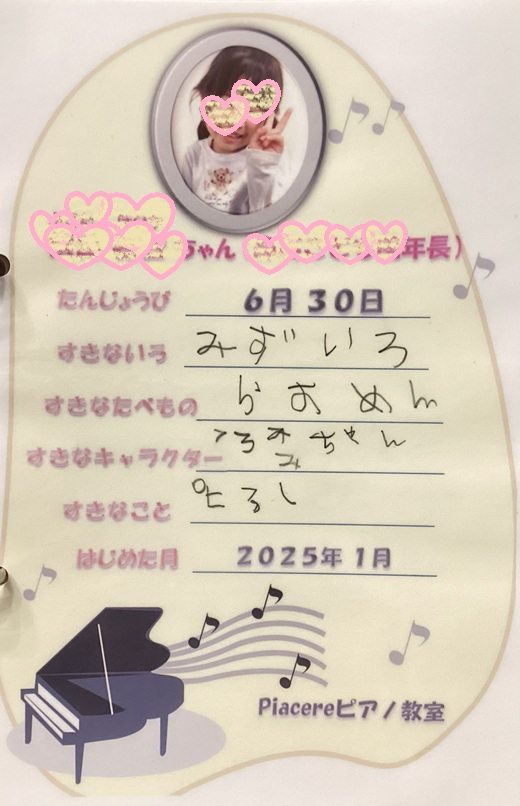 ちゃん 年長）
たんじょうび 6月 30日
すきないろ みずいろ
すきなたべもの らおめん
すきなキャラクター ころみちゃん
すきなこと
はじめた月 2025年 1月
Piacereピアノ教室